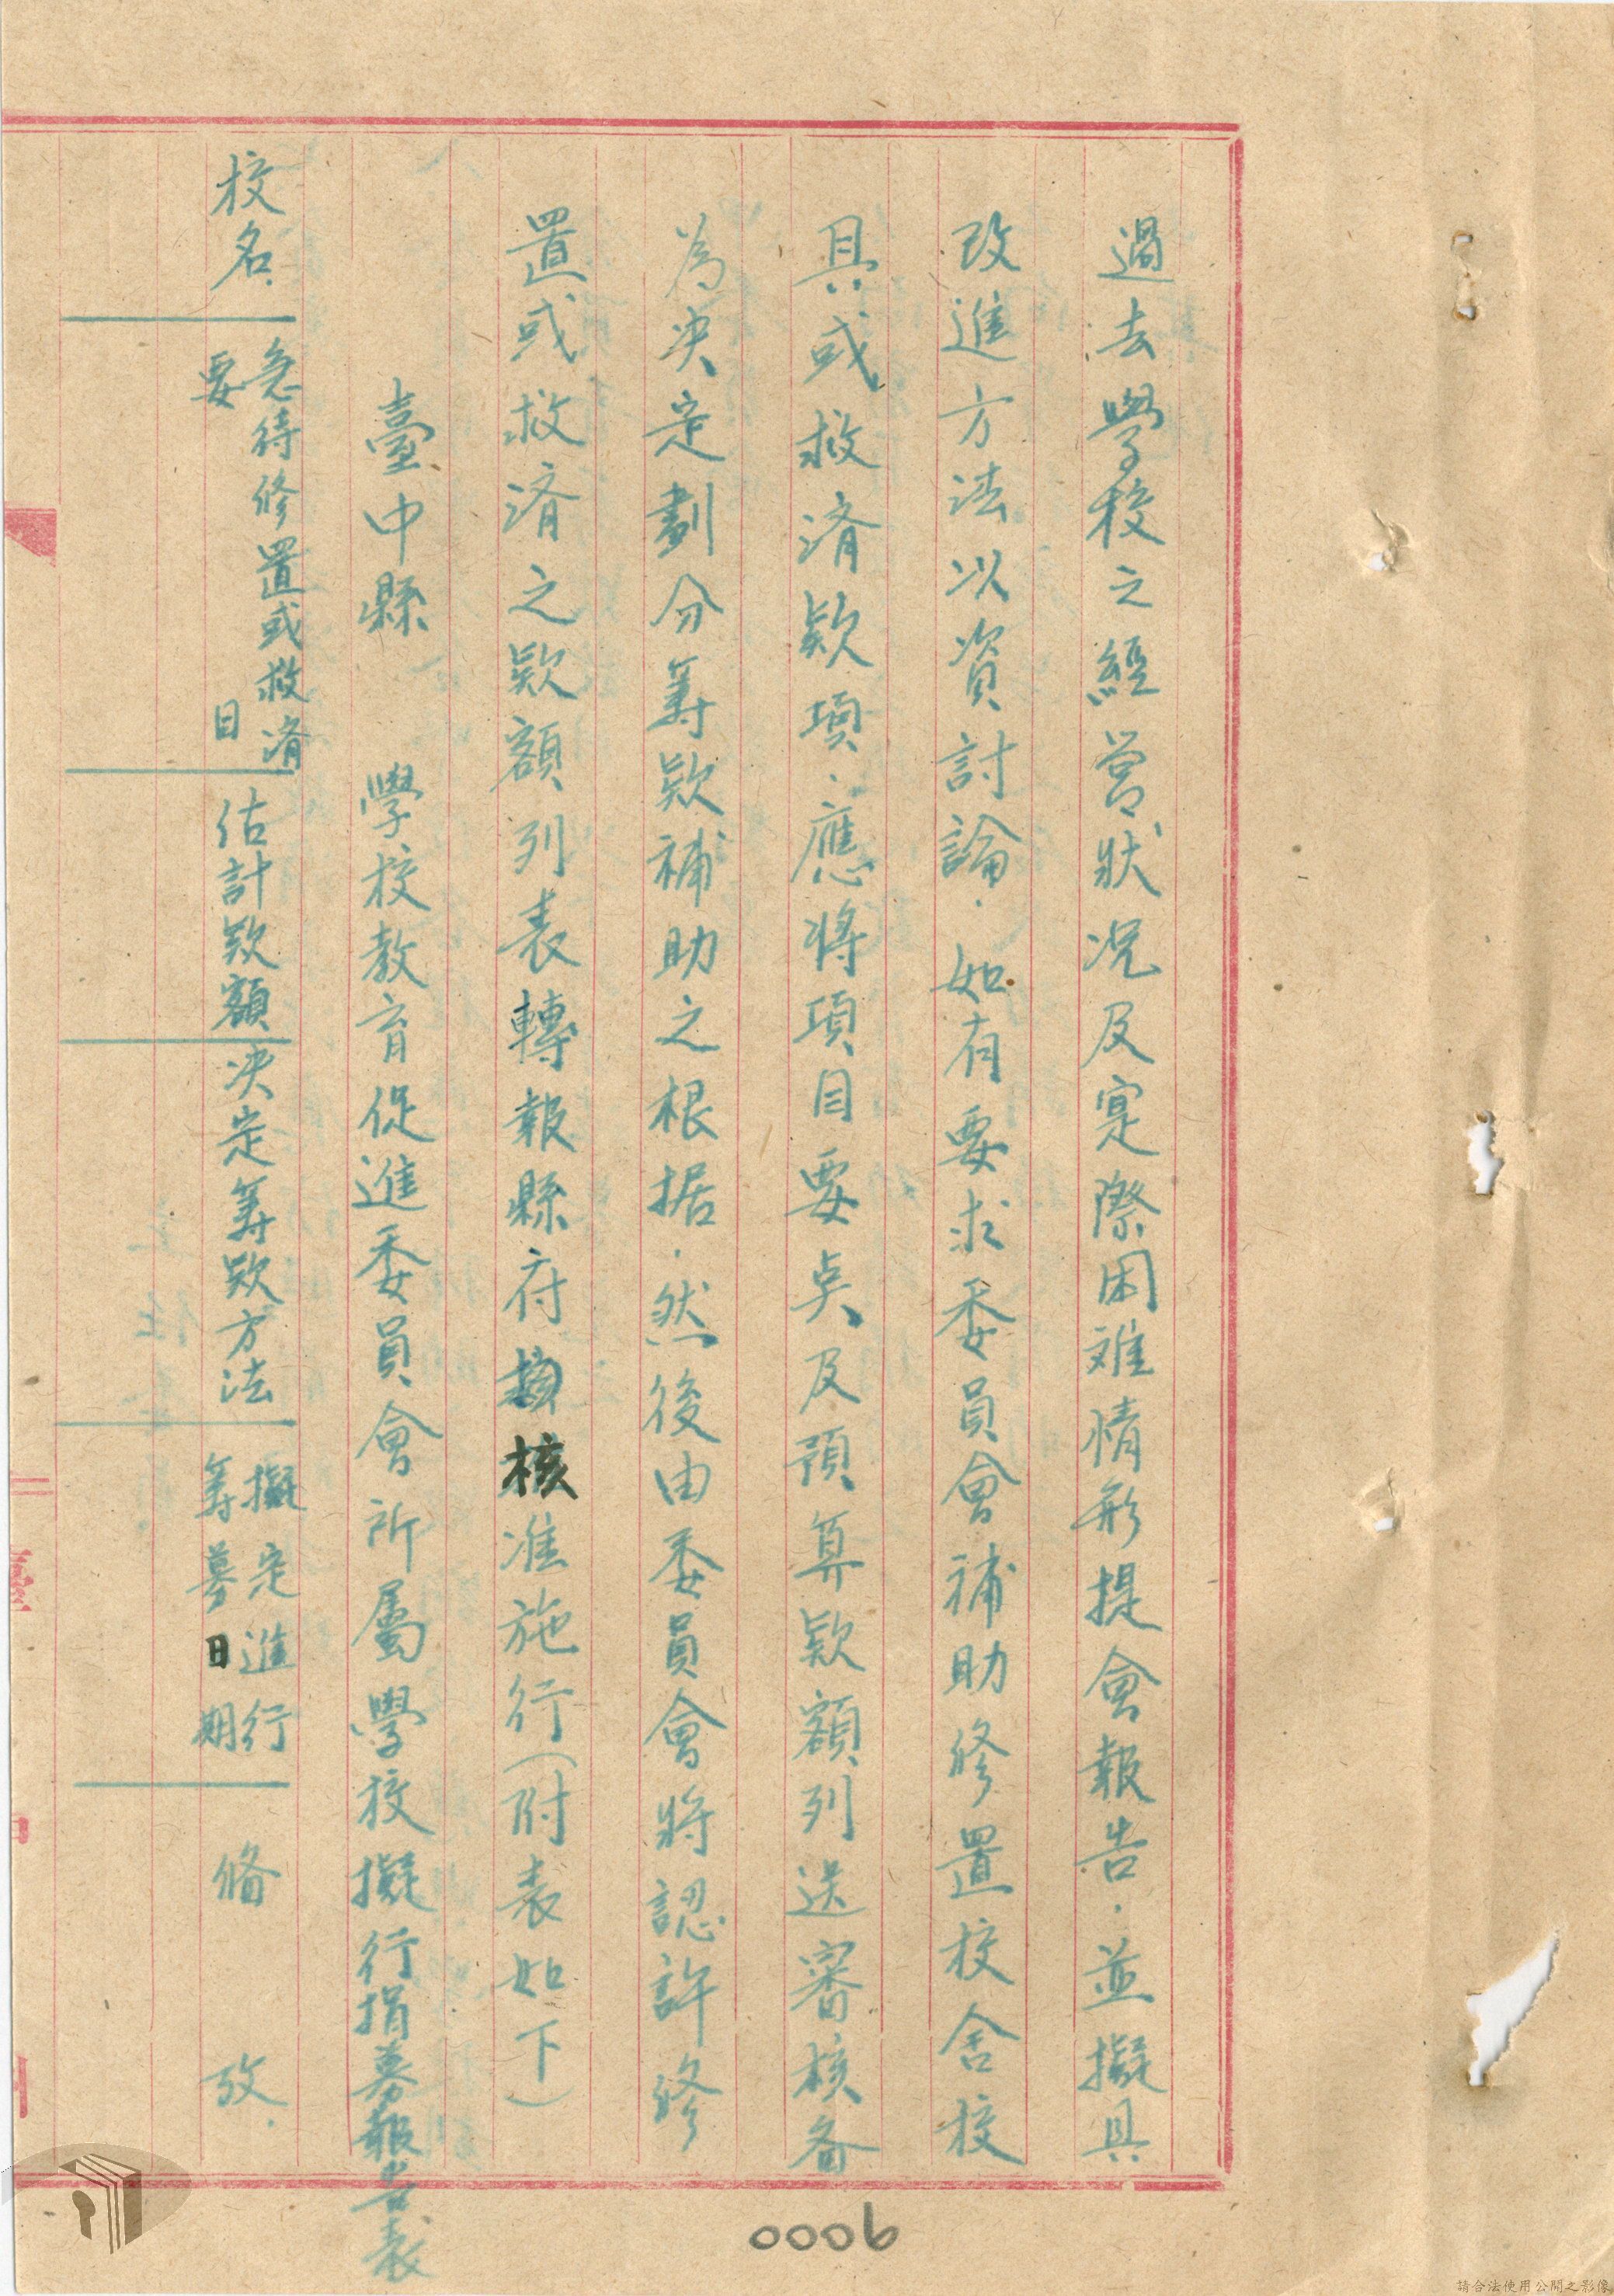 過去學校之經營狀況及寔際困难情形提會報告.並擬具
改進方法以資討論.如有要求委員會補助修置校舍校
具或救済欵項.應將項目要奌及預算欵額列送審核备
為决定劃分筹欵補助之根据.然後由委員會將認許修
置或救済之欵額列表轉報縣府核准施行(附表如下)
臺中縣　學校教育促進委員會所屬學校擬行捐募報告表
校名.
急待修置或救済
要目
估計欵額
决定筹欵方法
擬定進行
筹募日期
俻攷.
0006
請合法使用公開之影像